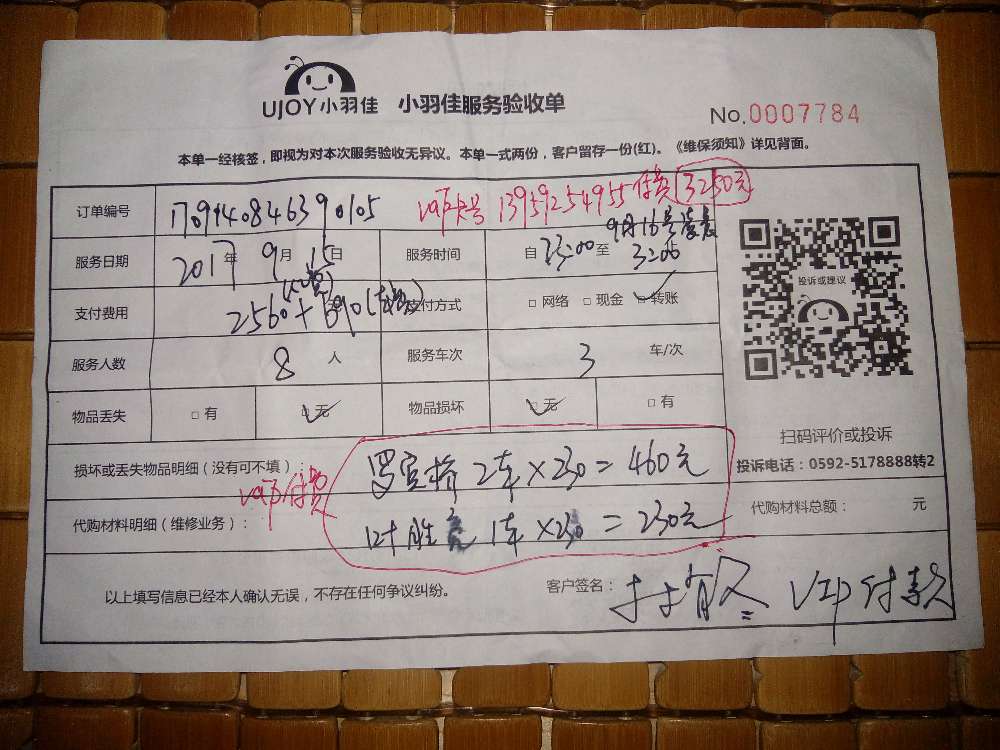 UJOY小羽佳 小羽佳服务验收单
No.0007784
本单一经核签，即视为对本次服务验收无异议。本单一式两份，客户留存一份(红)。《维保须知》详见背面。
订单编号 1709140846390105 VIP卡号 13959254955付费 3250元
服务日期 2017年9月15日 服务时间 自 23:00 至 9月16号凌晨 3:00
支付费用 2560+690 支付方式 □ 网络 □ 现金 □ 转账
投诉或建议
服务人数 8 人 服务车次 3 车/次
物品丢失 □ 有 □ 无 物品损坏 □ 无 □ 有
扫码评价或投诉
投诉电话：0592-5178888转2
损坏或丢失物品明细（没有可不填）： 2车×230=460元
VIP付费
代购材料明细（维修业务）： 叶胜 1车×230=230元
代购材料总额： 元
以上填写信息已经本人确认无误，不存在任何争议纠纷。 客户签名： VIP付款